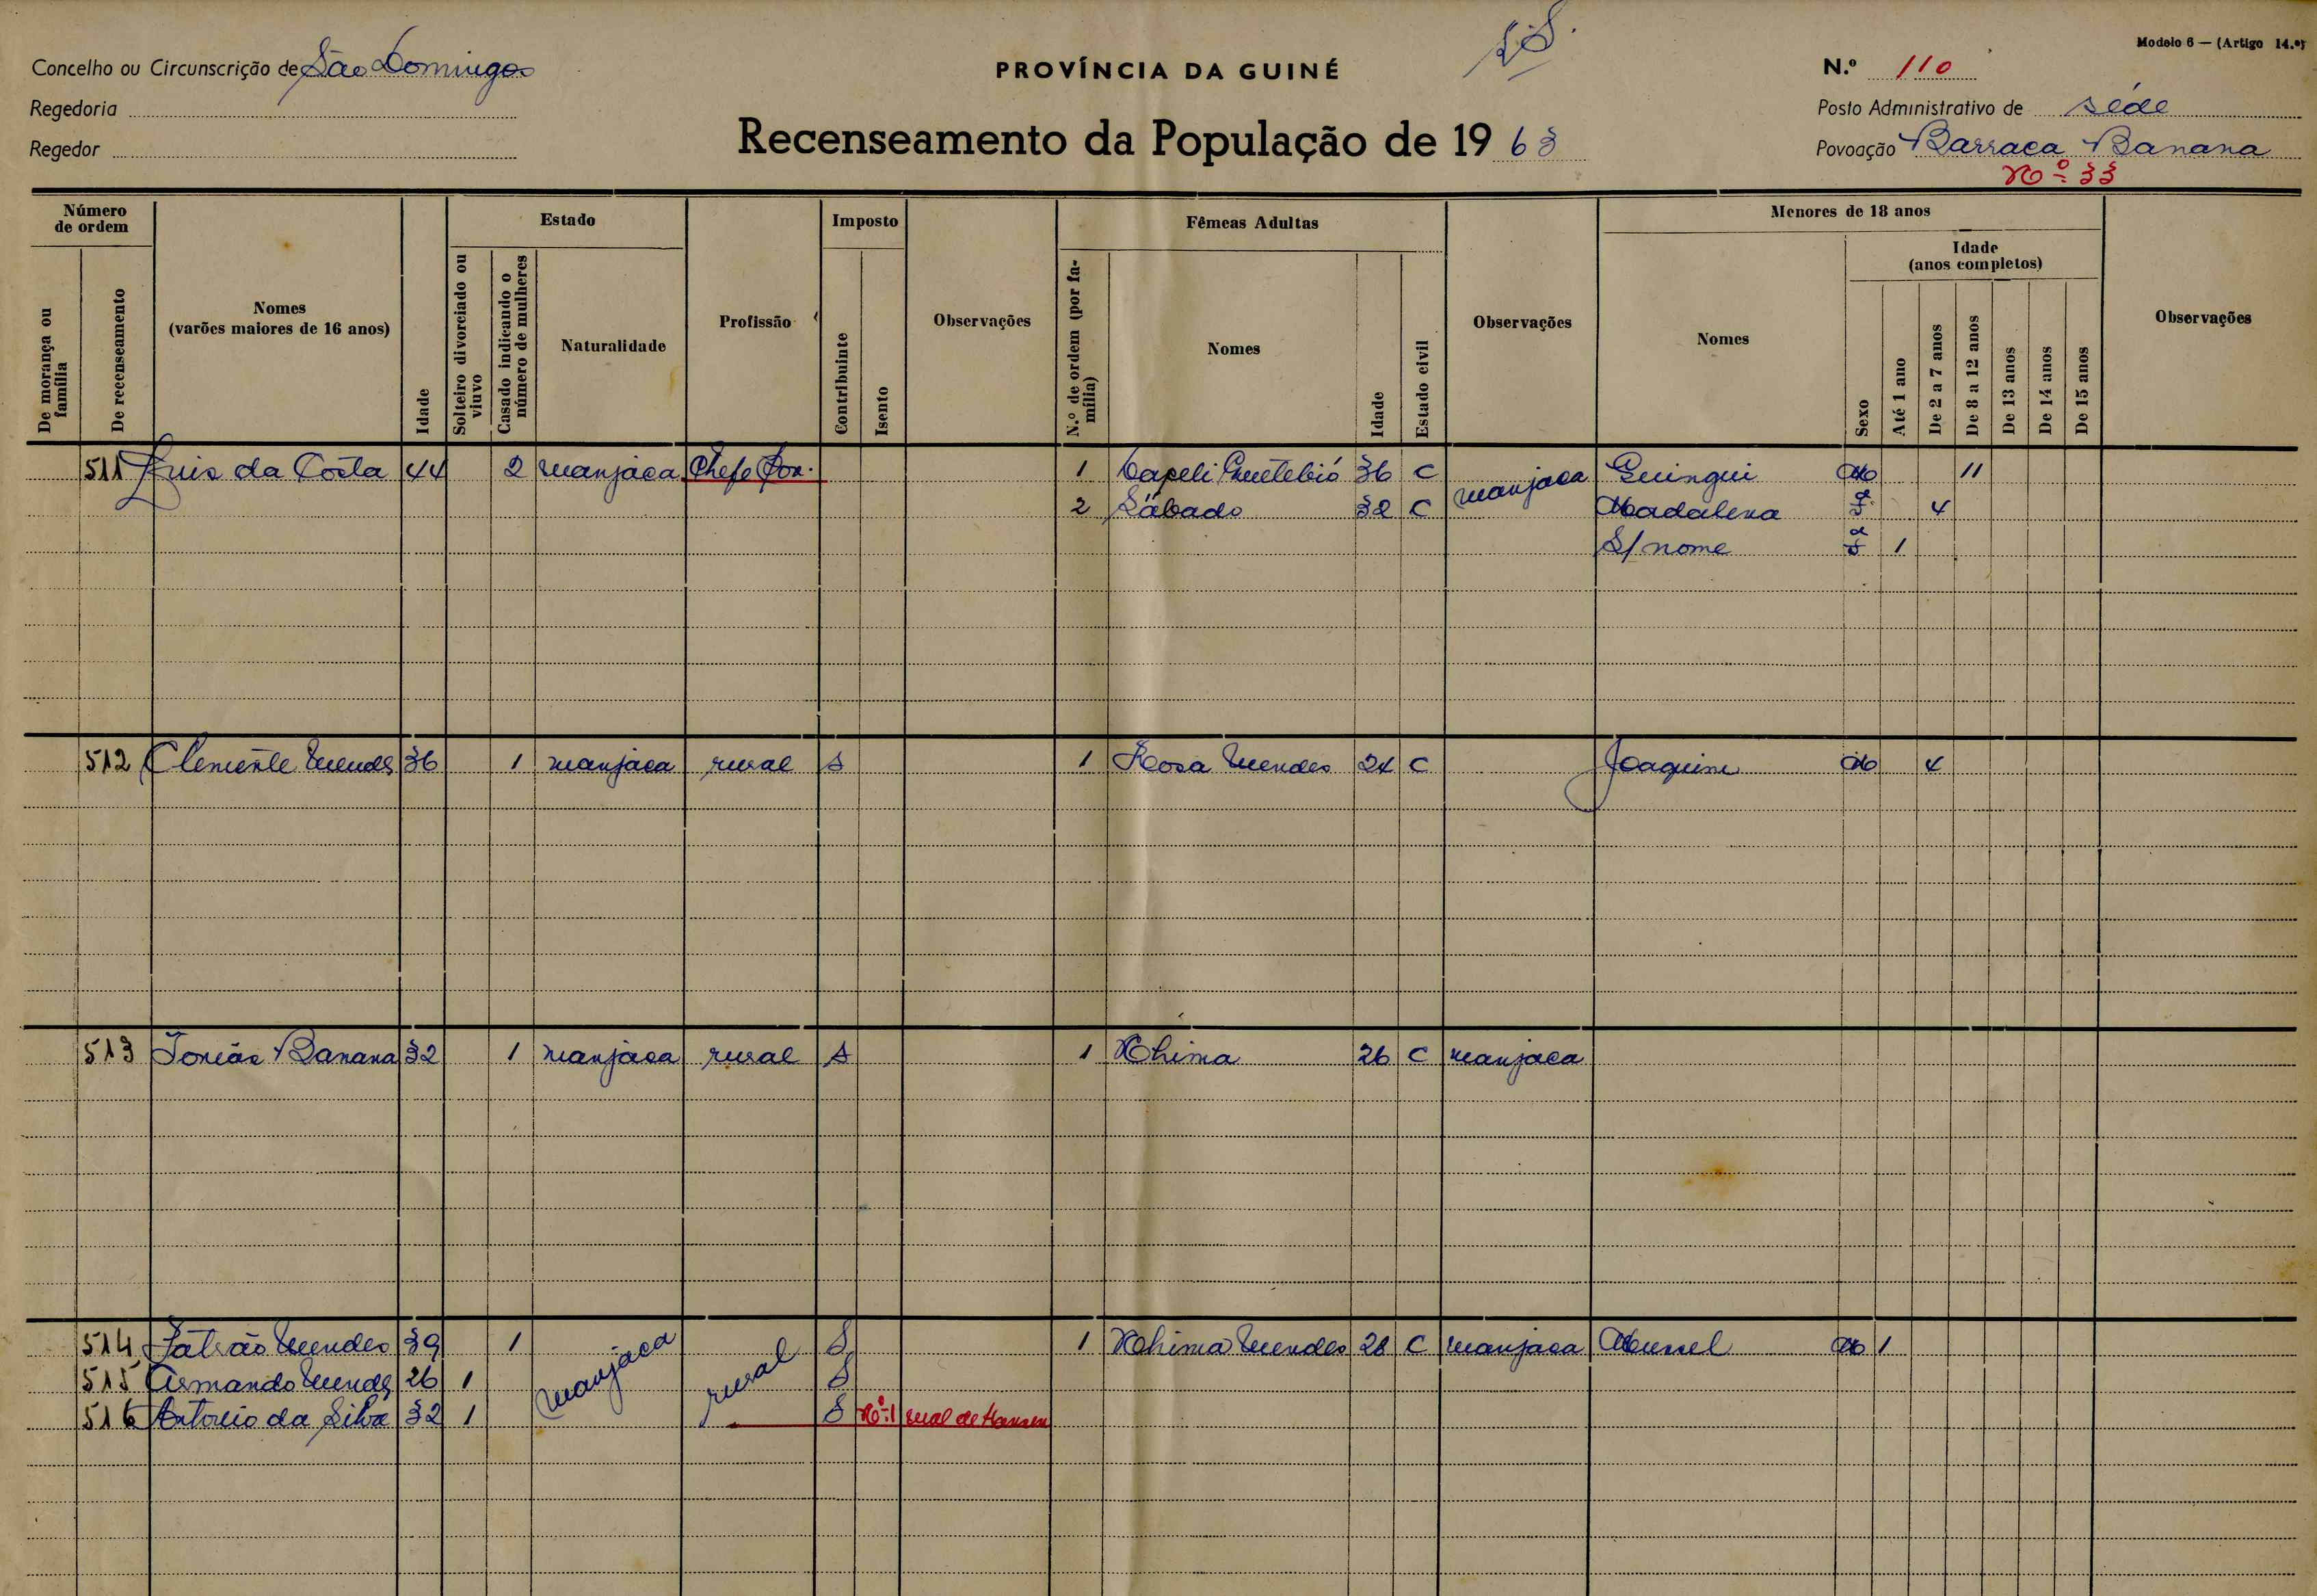 Modelo 6 — (Artigo 14.º)
Concelho ou Circunscrição de São Domingos
PROVÍNCIA DA GUINÉ
N.º 110
Regedoria
Posto Administrativo de séde
Regedor
Recenseamento da População de 1963
Povoação Barraca Banana
Nº 33
Número de ordem
De morança ou família
De recenseamento
Nomes (varões maiores de 16 anos)
Idade
Estado
Solteiro divorciado ou viuvo
Casado indicando o número de mulheres
Naturalidade
Profissão
Imposto
Contribuinte
Isento
Observações
Fêmeas Adultas
N.º de ordem (por família)
Nomes
Idade
Estado civil
Observações
Menores de 18 anos
Nomes
Sexo
Idade (anos completos)
Até 1 ano
De 2 a 7 anos
De 8 a 12 anos
De 13 anos
De 14 anos
De 15 anos
Observações
511 Luis da Costa 44 2 manjaca Chefe Pov. 1 Capeli 36 C manjaca Guingui M 11
2 Sábado 32 C Madalena F 4
S/ nome F 1
512 Clemente Mendes 36 1 manjaca rural S 1 Rosa Mendes 24 C Joaquim M 4
513 Tomás Banana 32 1 manjaca rural S 1 Nhima 26 C manjaca
514 Mendes 39 1 manjaca rural S 1 Nhima Mendes 28 C manjaca M 1
515 Armando Mendes 26 1 S
516 Antonio da Silva 32 1 S Nº 1 mal de Hansen